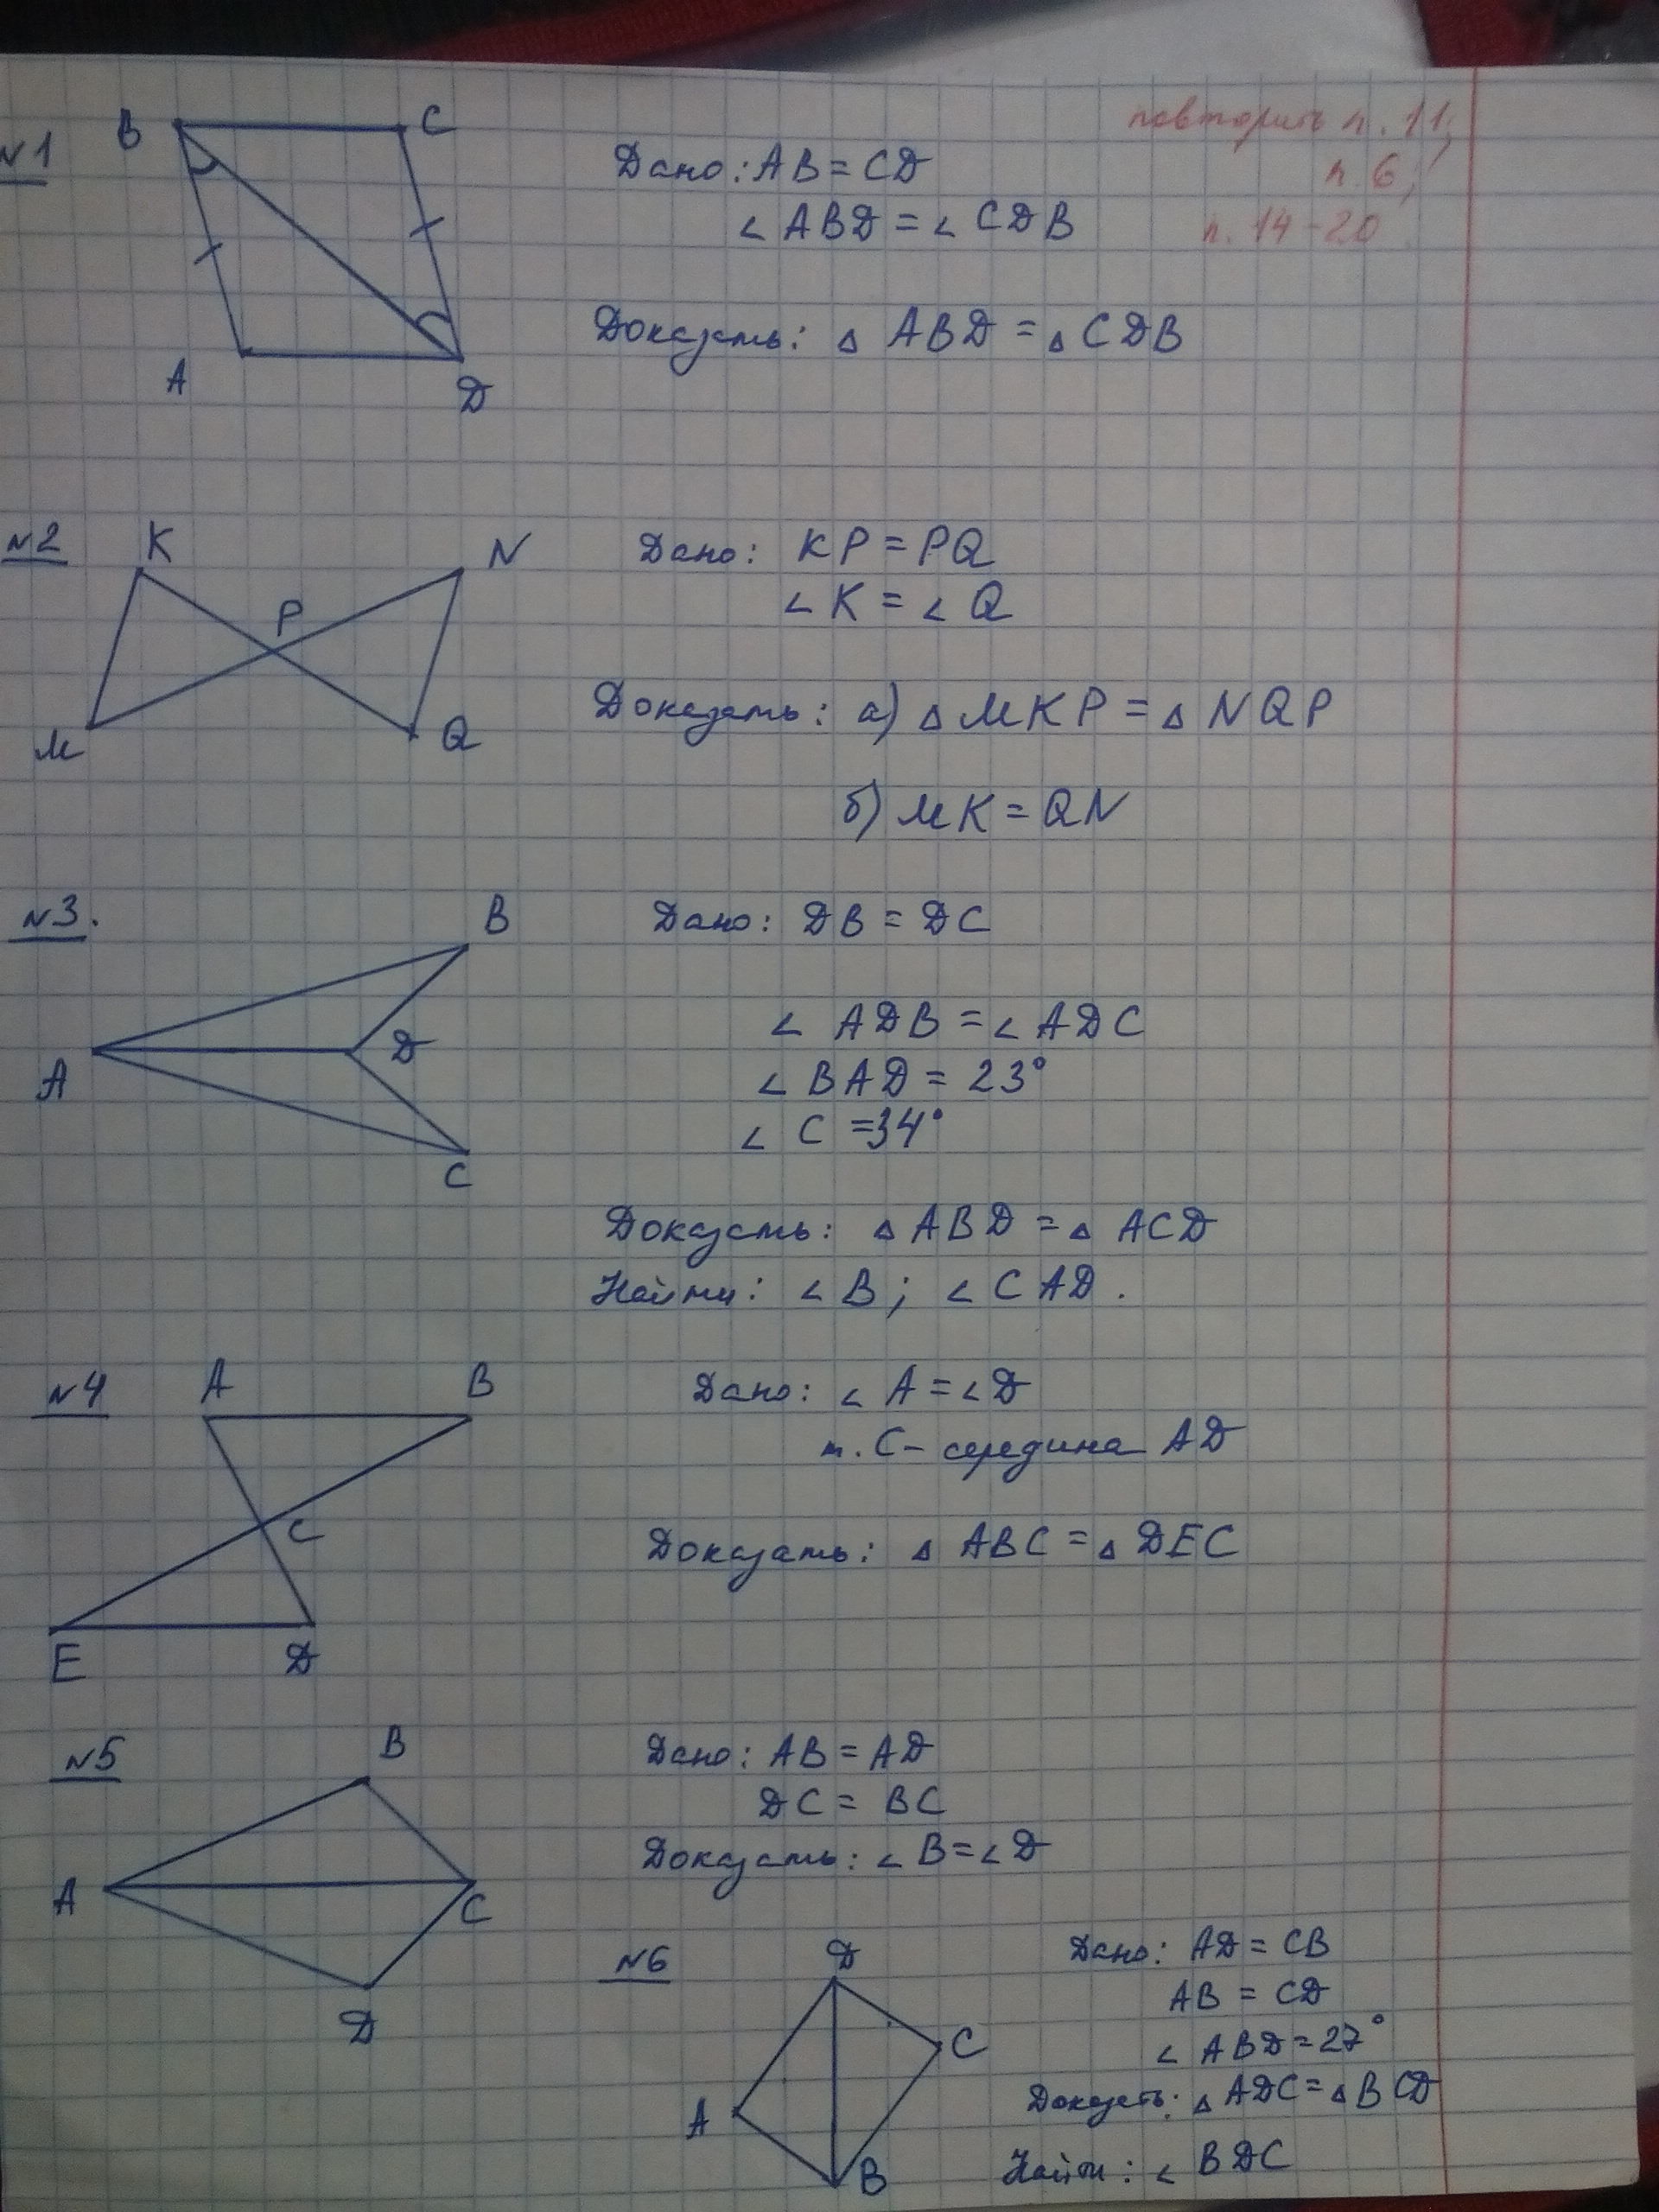 повторить п. 11,
п. 6,
п. 14-20
№1
B
C
A
D
Дано: AB = CD
∠ ABD = ∠ CDB
Доказать: △ ABD = △ CDB
№2
K
N
P
M
Q
Дано: KP = PQ
∠ K = ∠ Q
Доказать: а) △ MKP = △ NQP
б) MK = QN
№3.
B
A
D
C
Дано: DB = DC
∠ ADB = ∠ ADC
∠ BAD = 23°
∠ C = 34°
Доказать: △ ABD = △ ACD
Найти: ∠ B; ∠ CAD.
№4
A
B
C
E
D
Дано: ∠ A = ∠ D
т. C - середина AD
Доказать: △ ABC = △ DEC
№5
B
A
C
D
Дано: AB = AD
DC = BC
Доказать: ∠ B = ∠ D
№6
D
C
A
B
Дано: AD = CB
AB = CD
∠ ABD = 27°
Доказать: △ ADC = △ BCD
Найти: ∠ BDC